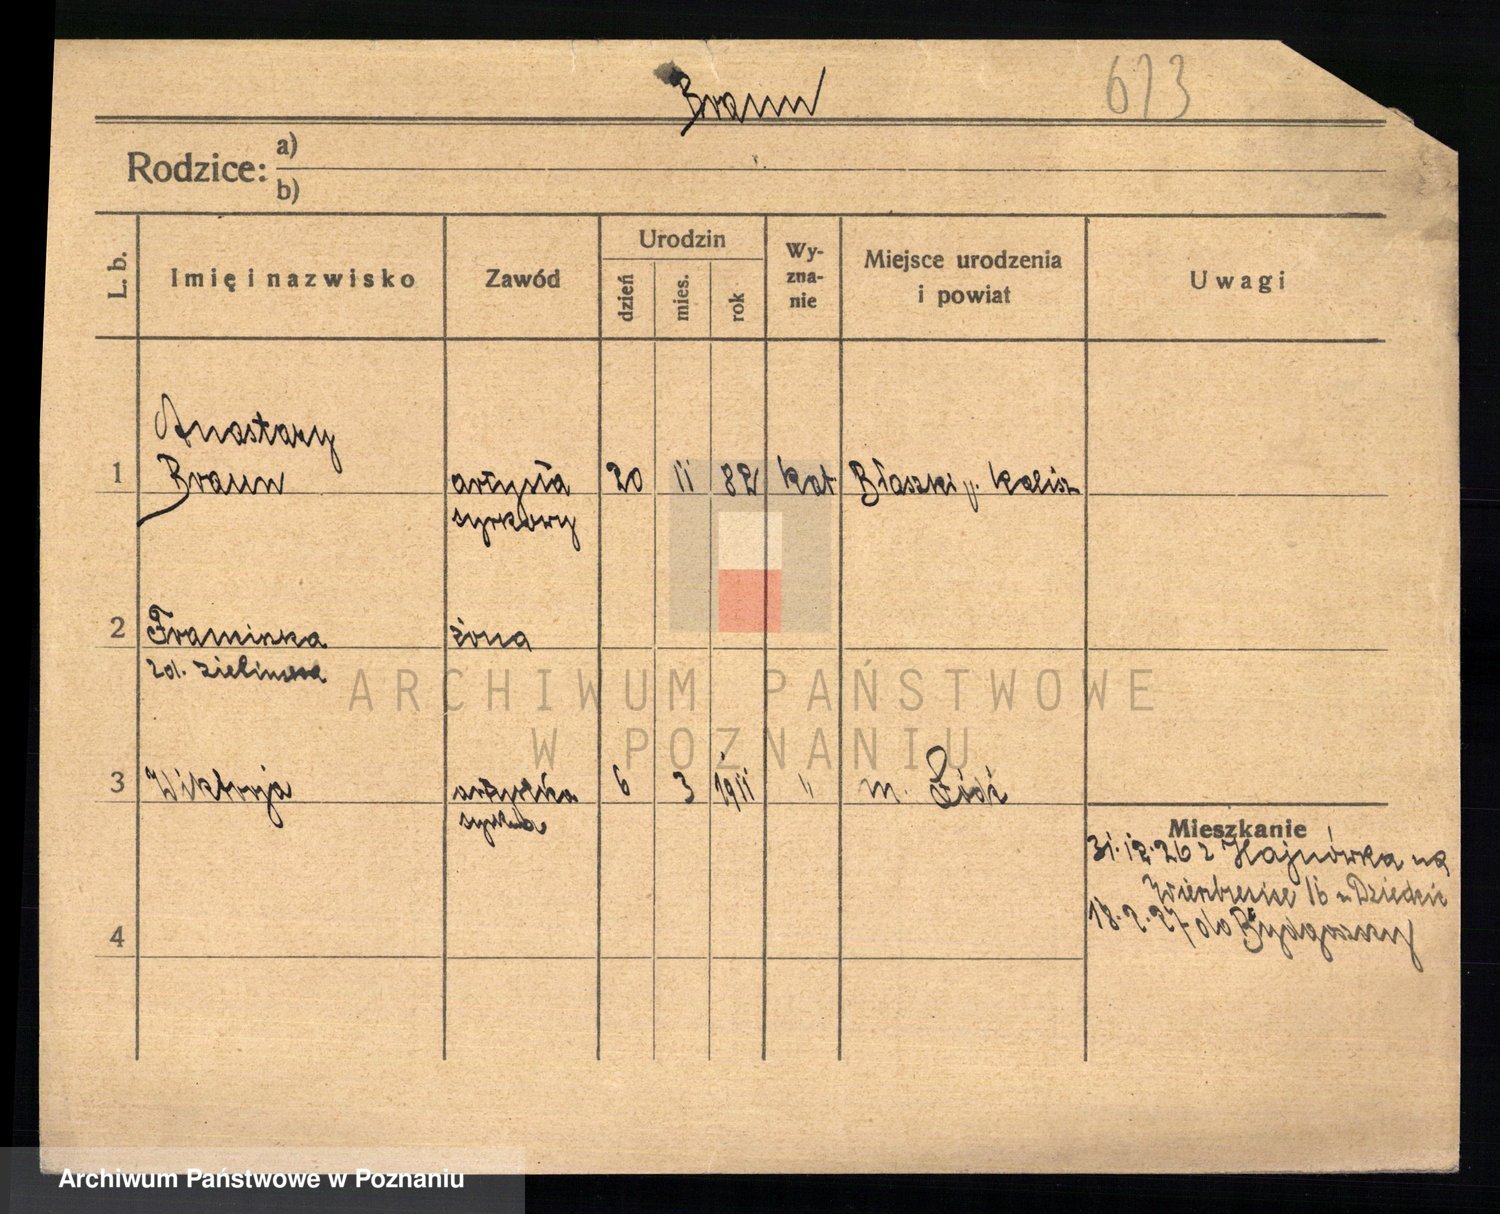 Braun
613
Rodzice: a)
b)
L. b.
Imię i nazwisko
Zawód
Urodzin
dzień
mies.
rok
Wy-
zna-
nie
Miejsce urodzenia
i powiat
Uwagi
Anastazy
1 Braun artysta 20 11 82 kat Błaszki p. Kalisz
cyrkowy
2 Franciszka żona
zd. Zielińska
3 Wiktorja artystka 6 3 1911 " m. Łódź
Mieszkanie
31.12.26 z Hajnówka na
Wierzbięcice 16 u
18.2.27 do Bydgoszczy
4
ARCHIWUM PAŃSTWOWE
W POZNANIU
Archiwum Państwowe w Poznaniu